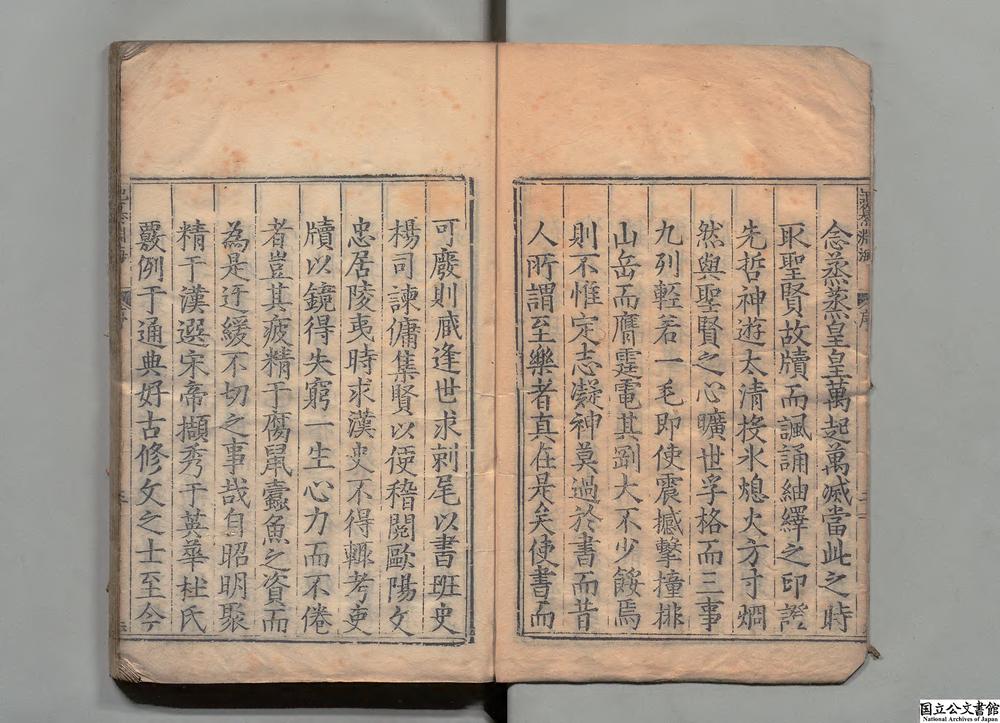 念蒸蒸皇皇萬起萬滅當此之時
取聖賢故牘而諷誦紬繹之印證
先哲神遊太清投氷熄火方寸烱
然與聖賢之心曠世孚格而三事
九列輕若一毛即使震撼擊撞排
山岳而鴈霆電其劉大不少餒焉
則不惟定志凝神莫過於書而昔
人所謂至樂者真在是矣使書而
可廢則臧逢世求刺尾以書班史
楊司諫傭集賢以便稽閱歐陽文
忠居陵夷時求漢史不得輙考吏
牘以鏡得失窮一生心力而不倦
者豈其疲精于腐鼠蠹魚之資而
為是迂緩不切之事哉自昭明聚
精于漢選宋帝擷秀于英華杜氏
覈例于通典好古修文之士至今
序
序
国立公文書館
National Archives of Japan